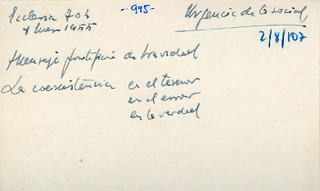 Ecclesia 704
-995-
Urgencia de lo social
8 Enero 1955
2/8/107
Mensaje pontificio de Navidad
La coexistencia en el temor
en el error
en la verdad